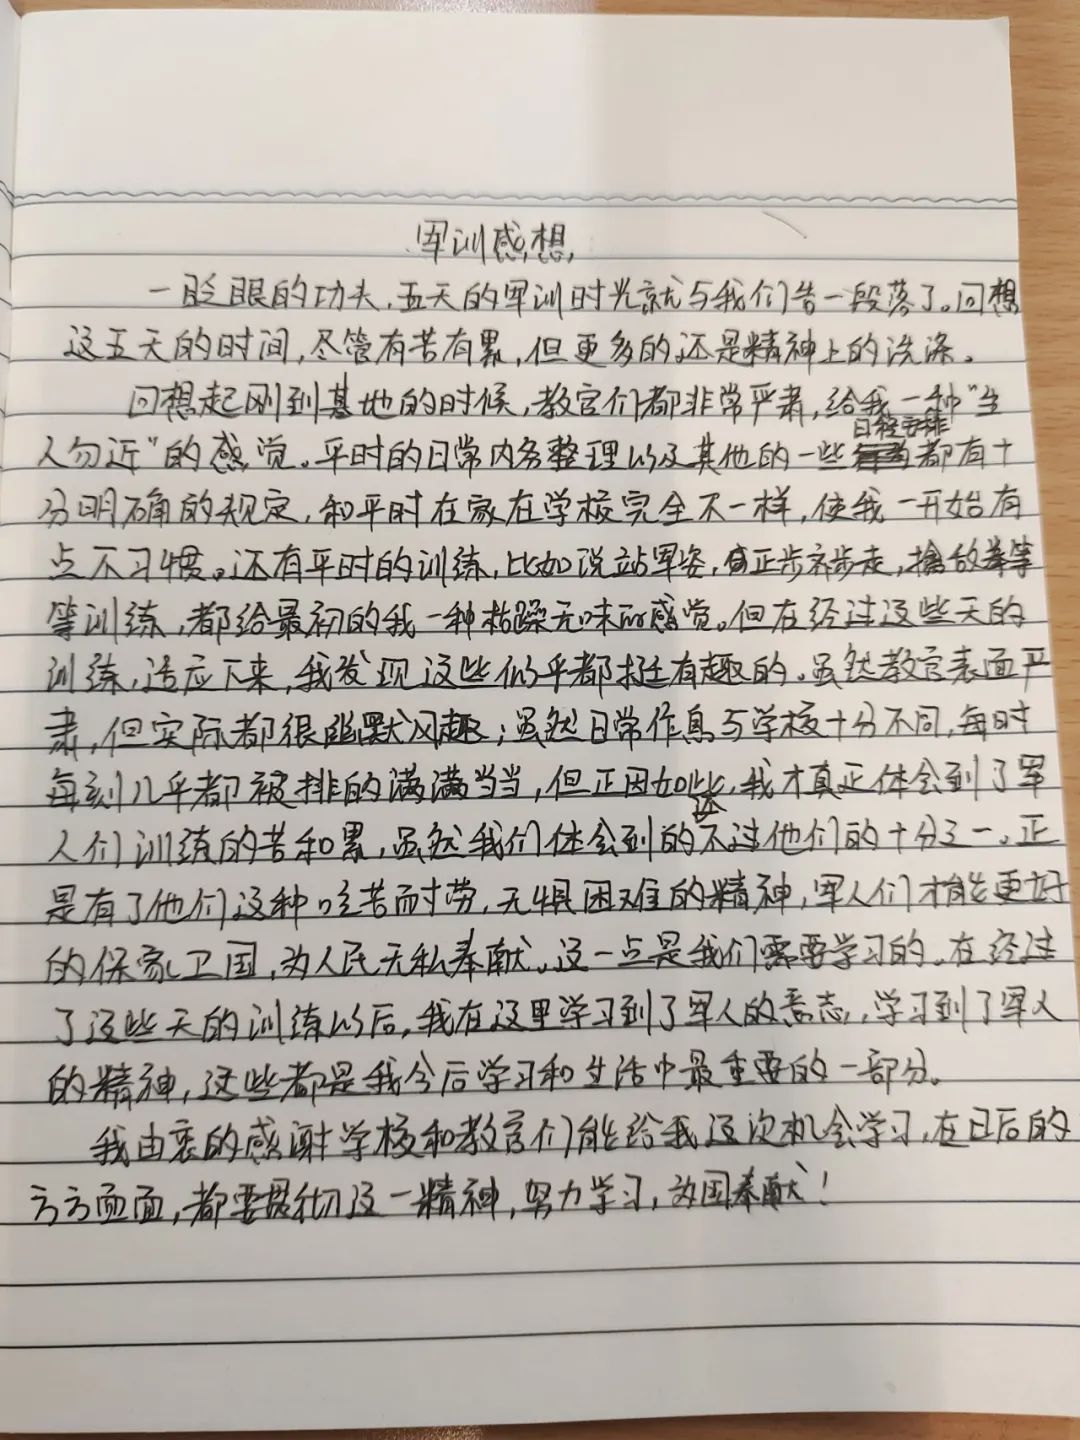 军训感想
一眨眼的功夫,五天的军训时光就与我们告一段落了。回想
这五天的时间,尽管有苦有累,但更多的还是精神上的洗涤。
回想起刚到基地的时候,教官们都非常严肃,给我一种“生
人勿近”的感觉。平时的日常内务整理以及其他的一些日程安排都有十
分明确的规定,和平时在家在学校完全不一样,使我一开始有
点不习惯。还有平时的训练,比如说站军姿,正步齐步走,擒敌拳等
等训练,都给最初的我一种枯躁无味的感觉。但在经过这些天的
训练,适应下来,我发现这些似乎都挺有趣的。虽然教官表面严
肃,但实际都很幽默风趣;虽然日常作息与学校十分不同,每时
每刻几乎都被排的满满当当,但正因如此,我才真正体会到了军
人们训练的苦和累,虽然我们体会到的还不过他们的十分之一。正
是有了他们这种吃苦耐劳,无惧困难的精神,军人们才能更好
的保家卫国,为人民无私奉献。这一点是我们需要学习的。在经过
了这些天的训练以后,我在这里学习到了军人的意志,学习到了军人
的精神,这些都是我今后学习和生活中最重要的一部分。
我由衷的感谢学校和教官们能给我这次机会学习,在日后的
方方面面,都要贯彻这一精神,努力学习,为国奉献!